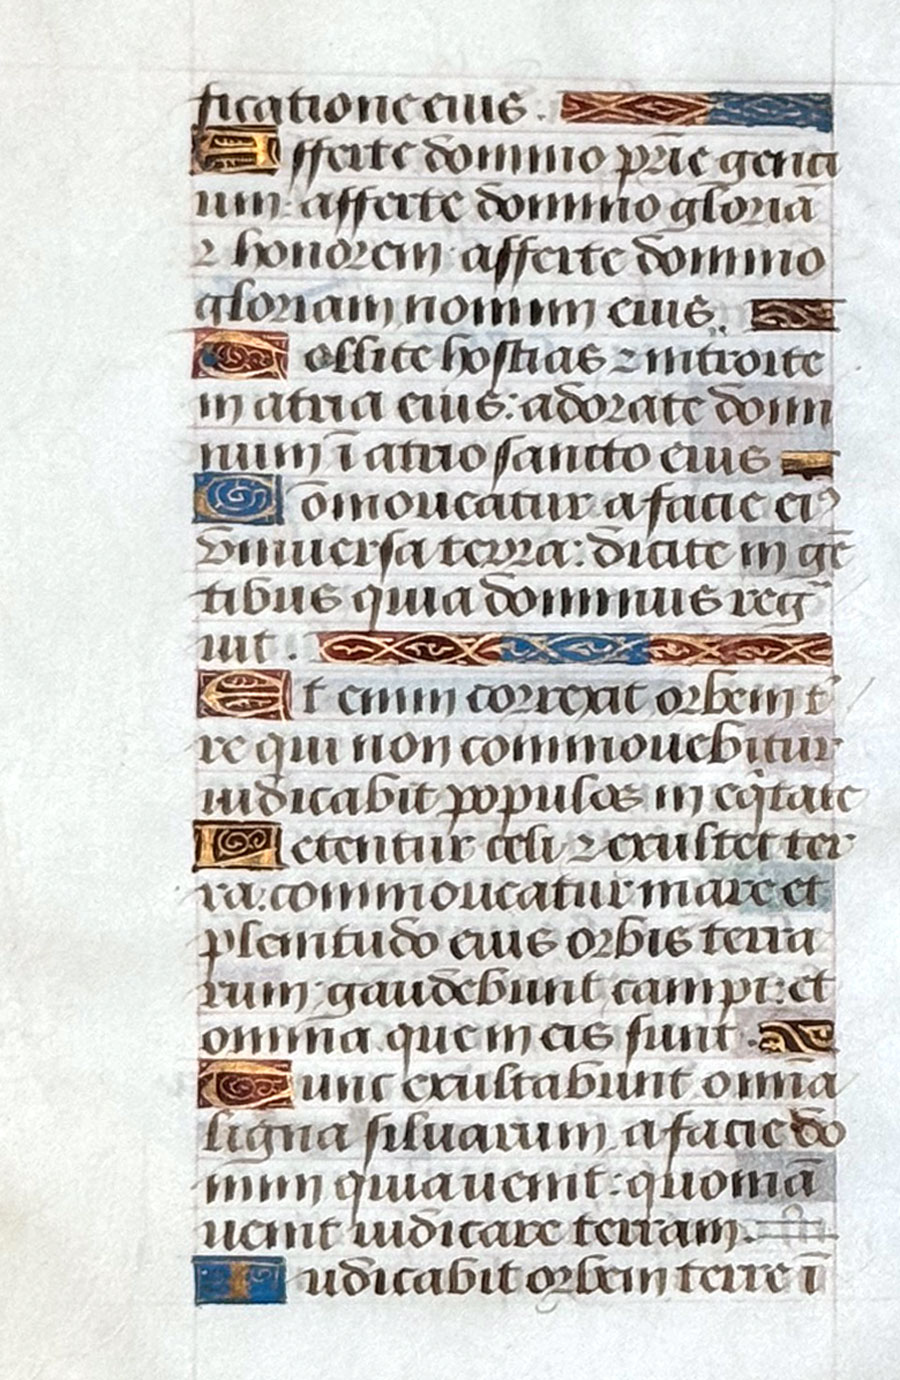 ficatione eius.
Afferte domino prīe genti
um: afferte domino gloriā
⁊ honorem: afferte domino
gloriam nomini eius.
Tollite hostias ⁊ introite
in atria eius: adorate domi
num ī atrio sancto eius
Cōmoveatur a facie eiꝰ
vniuersa terra: dicite in gē
tibus quia dominus regͣ
uit.
Et enim correxit orbem tͬ
re qui non commouebitur
iudicabit populos in eq̄tate
Letentur celi ⁊ exultet ter
ra: commoueatur mare et
plenitudo eius orbis terra
rum: gaudebunt campi: et
omnia que in eis sunt.
Tunc exultabunt omnia
ligna siluarum a facie do
mini quia uenit: quoniā
uenit iudicare terram.
Iudicabit orbem terre ī